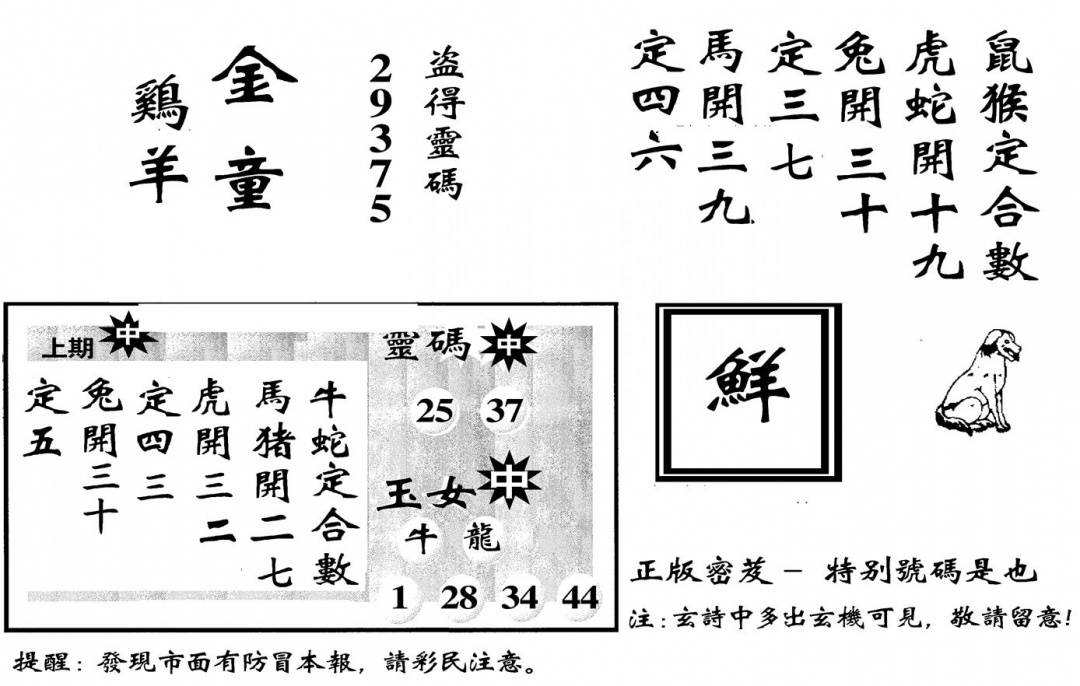 鼠猴定合數
虎蛇開十九
兔開三十
定三七
馬開三九
定四六
盜得靈碼
29375
金童
鷄羊
上期中
牛蛇定合數
馬猪開二七
虎開三二
定四三
兔開三十
定五
靈碼中
25 37
玉女中
牛龍
1 28 34 44
鮮
正版密芨－特别號碼是也
注:玄詩中多出玄機可見，敬請留意!
提醒：發現市面有防冒本報，請彩民注意。